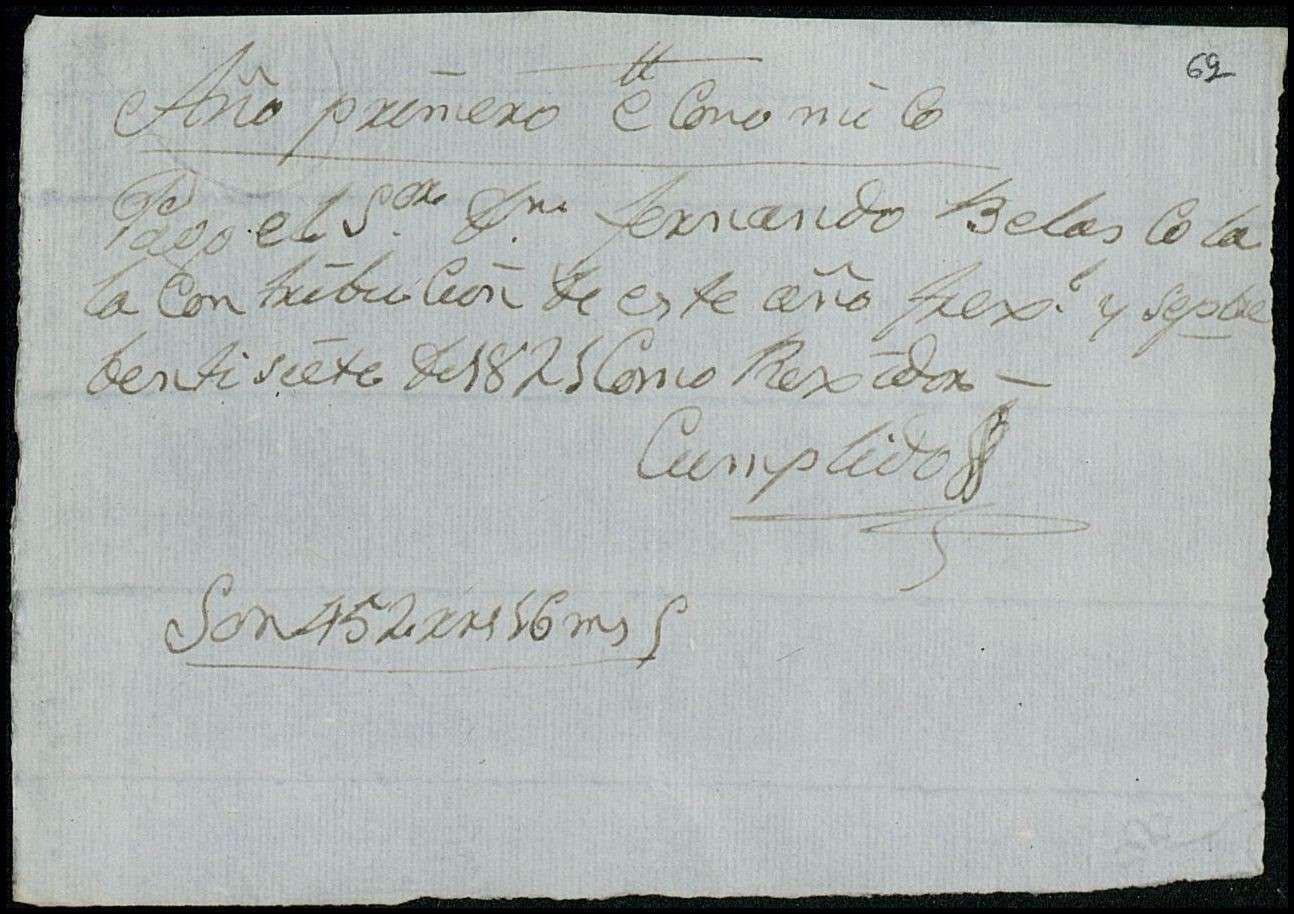 69
Año primero economico
Pago el S.or D.n fernando Belasco la
la Contribucion de este año y septbre
bentisiete de 1821 Como Rexidor —
Cumplido
Son 452 rrs 16 ms